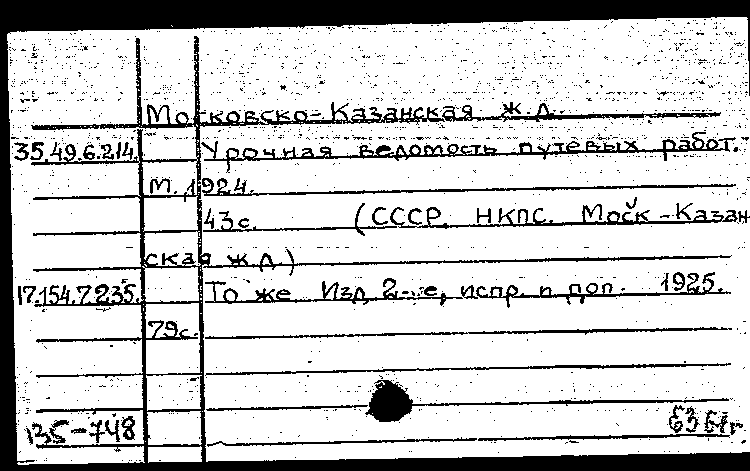 Московско-Казанская ж.д.
35.49.6.214. Урочная ведомость путевых работ.
М. 1924.
43с. (СССР. НКПС. Моск-Казан
ская ж.д.)
17.154.7.235. То же Изд 2-ие, испр. п доп. 1925.
79с.
135-748